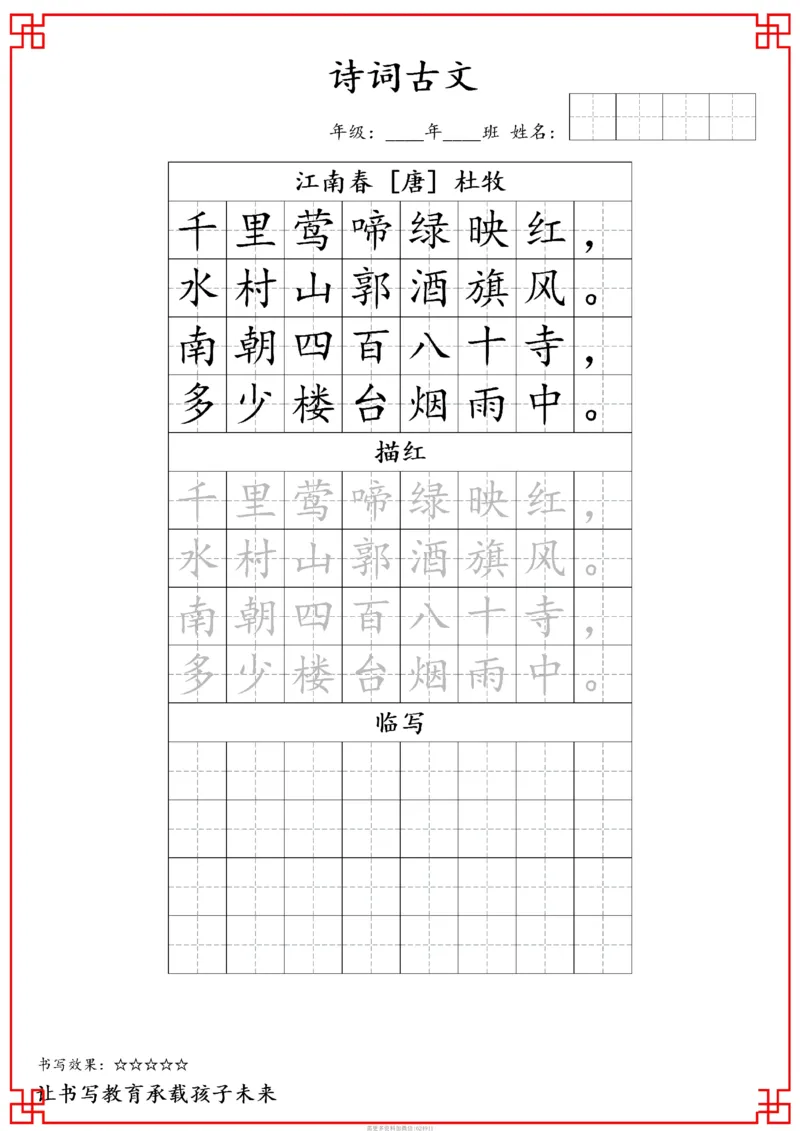 诗词古文
年级：____年____班 姓名：
江南春［唐］杜牧
千里莺啼绿映红，
水村山郭酒旗风。
南朝四百八十寺，
多少楼台烟雨中。
描红
千里莺啼绿映红，
水村山郭酒旗风。
南朝四百八十寺，
多少楼台烟雨中。
临写
书写效果：☆☆☆☆☆
让书写教育承载孩子未来